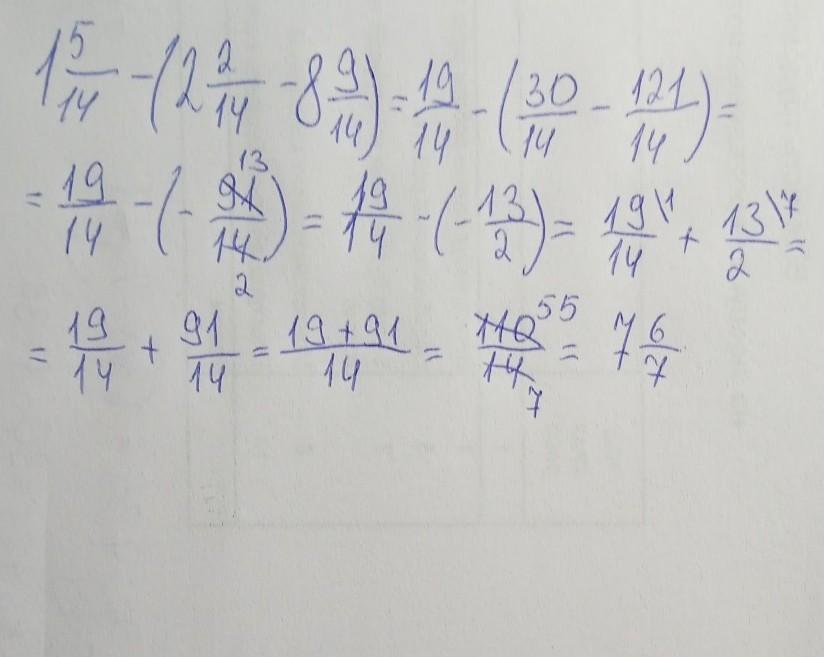 1 5/14 - (2 2/14 - 8 9/14) = 19/14 - (30/14 - 121/14) =
= 19/14 - (- 91/14 13 2) = 19/14 - (- 13/2) = 19\1/14 + 13\7/2 =
= 19/14 + 91/14 = 19+91/14 = 110/14 55 7 = 7 6/7